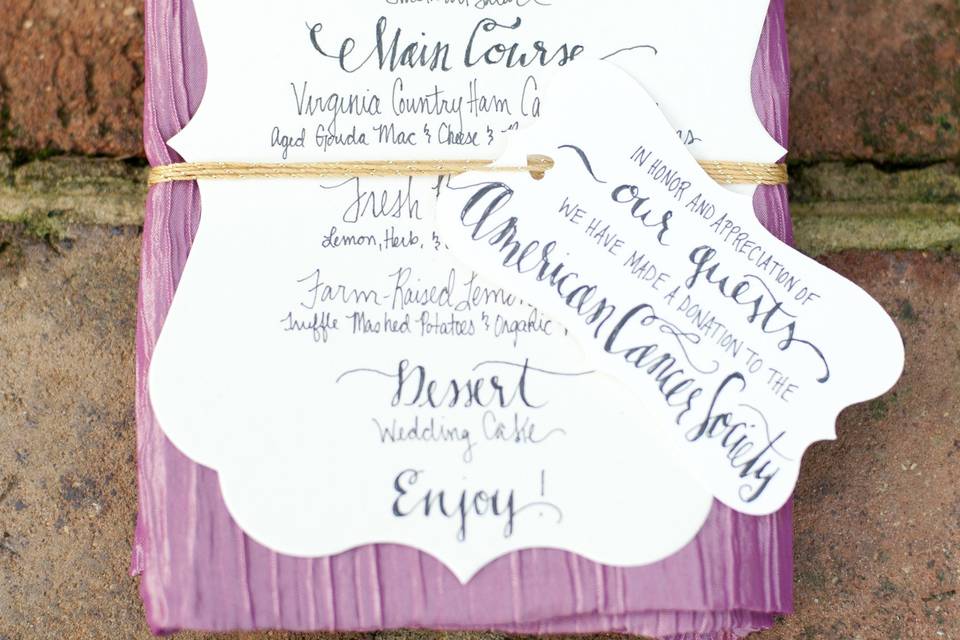 Main Course
Virginia Country Ham
Aged Gouda Mac & Cheese &
Fresh
Lemon, Herb, &
Farm-Raised
Truffle Mashed Potatoes & Organic
Dessert
Wedding Cake
Enjoy!
IN HONOR AND APPRECIATION OF
our guests
WE HAVE MADE A DONATION TO THE
American Cancer Society